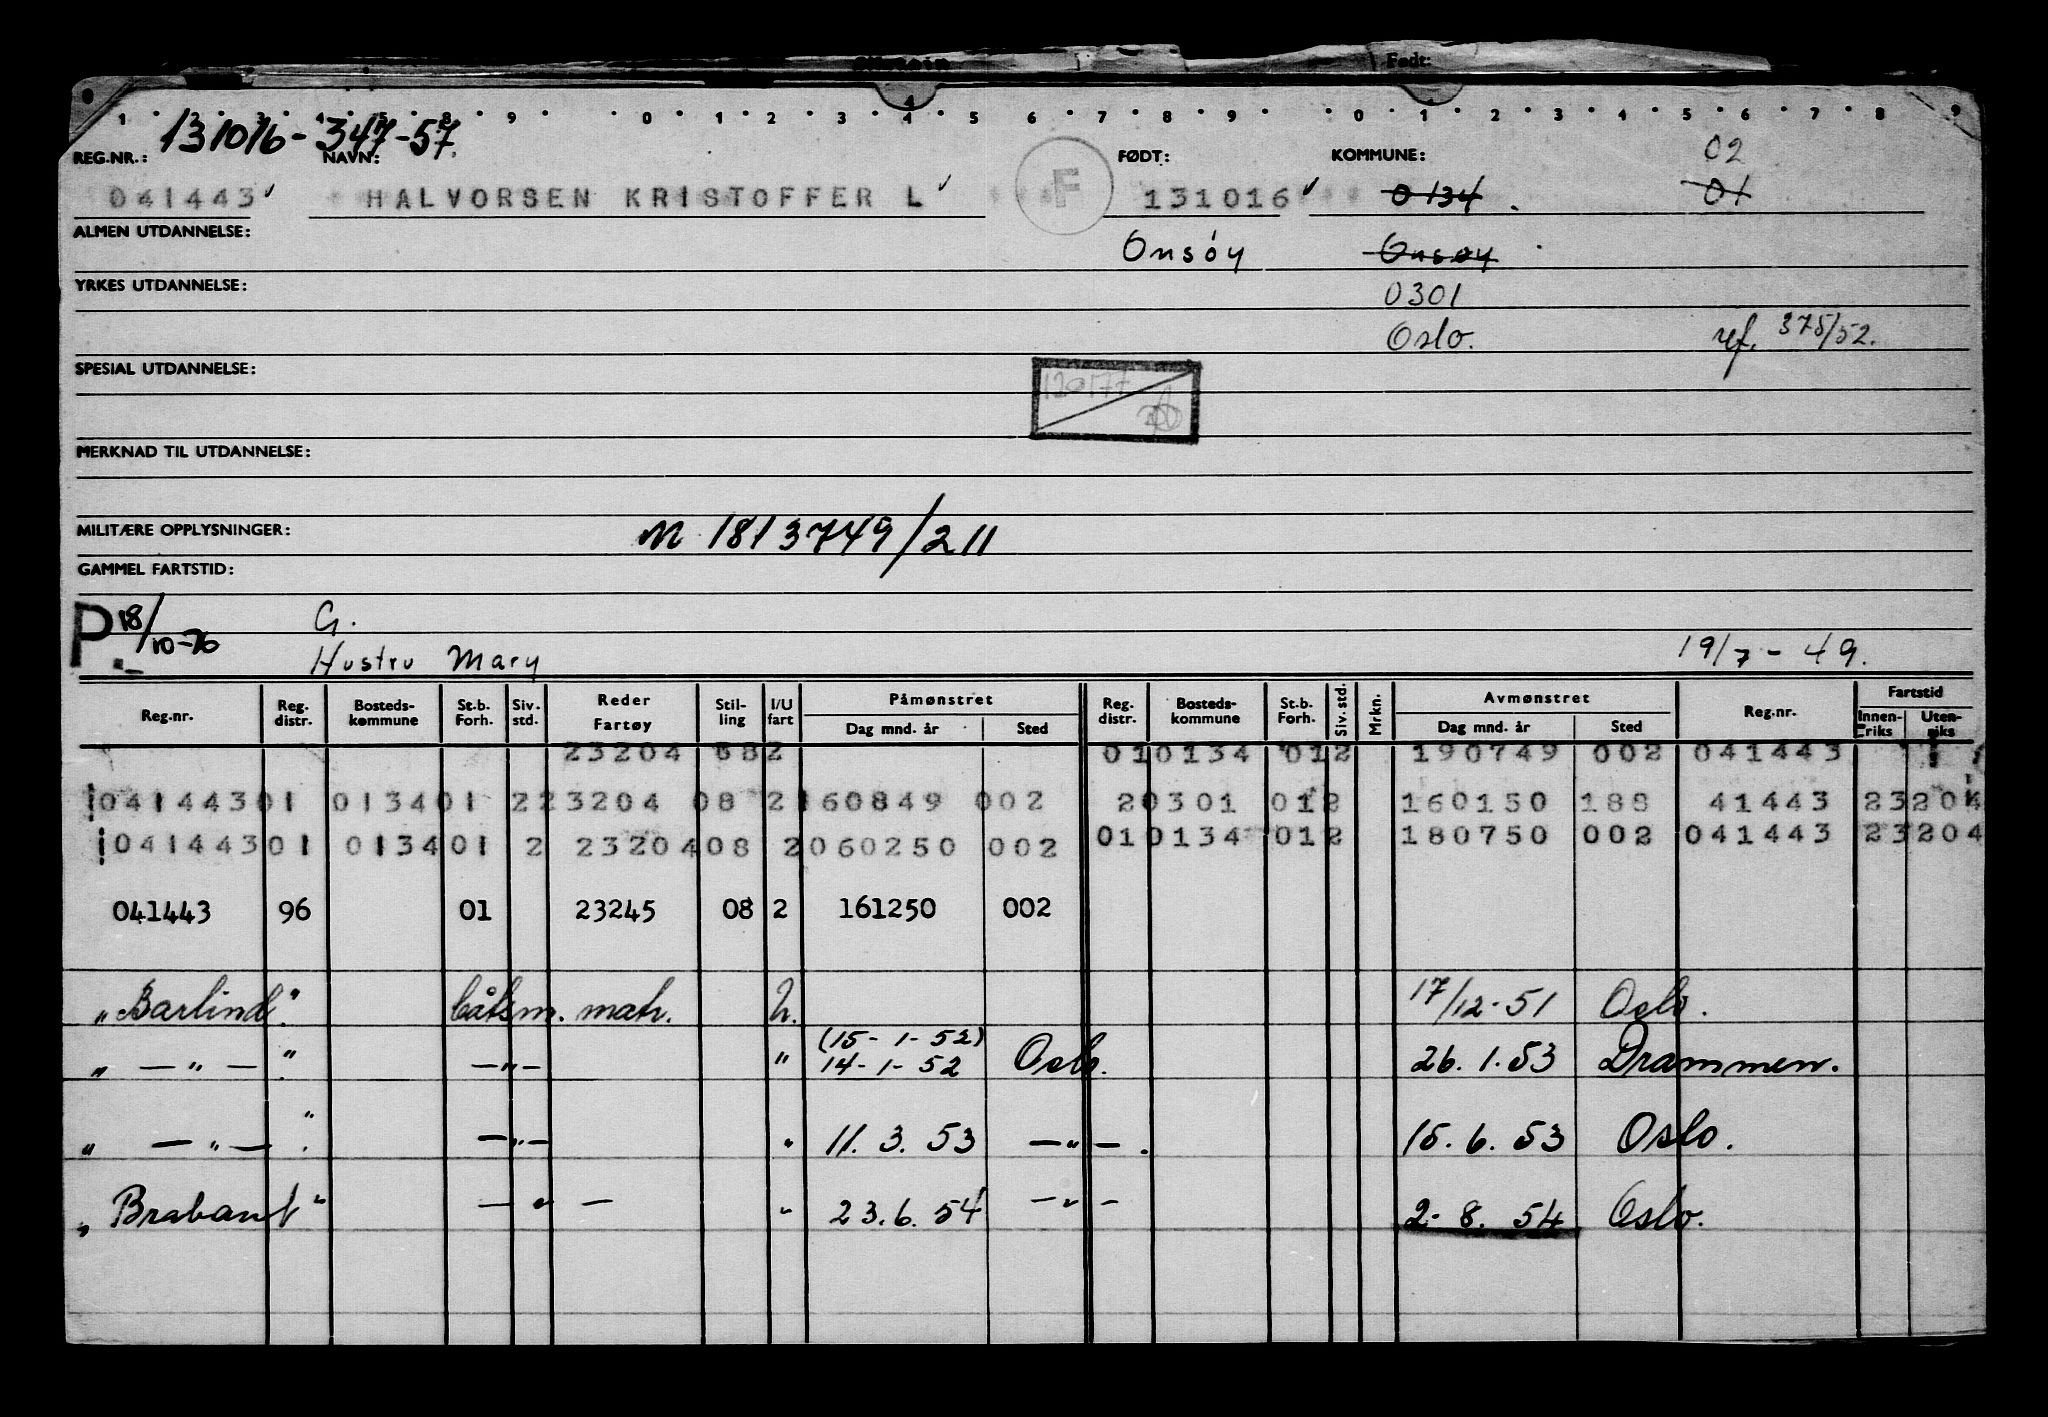 Født:
1 2 3 4 5 7 8 9 0 1 2 3 4 5 6 7 8 9 0 1 2 3 4 5 6 7 8 9
131016-347-57
REG.NR.: NAVN: FØDT: KOMMUNE: 02
041443 HALVORSEN KRISTOFFER L F 131016 0134 01
ALMEN UTDANNELSE: Onsøy Onsøy
YRKES UTDANNELSE: 0301
Oslo. ref. 375/52.
SPESIAL UTDANNELSE:
MERKNAD TIL UTDANNELSE:
MILITÆRE OPPLYSNINGER: M 1813749/211
GAMMEL FARTSTID:
P 18/10-76 G.
Hustru Mary 19/7-49.
Reg.nr. Reg. distr. Bosteds-kommune St.b. Forh. Siv. std. Reder Fartøy Stil-ling I/U fart Påmønstret Dag mnd. år Sted Reg. distr. Bosteds-kommune St.b. Forh. Siv. std. Mrkn. Avmønstret Dag mnd. år Sted Reg.nr. Fartstid Innen-riks Uten-riks
23204 082 010134 012 190749 002 041443
04144301 013401 223204 08 2160849 002 20301 012 160150 188 41443 23204
04144301 013401 2 2320408 2060250 002 010134 012 180750 002 041443 23204
041443 96 01 23245 08 2 161250 002
"Barlind". båtsm. matr. U. 17/12-51 Oslo.
" — " — ". — " — " (15-1-52) 14-1-52 Oslo. 26.1.53 Drammen.
" — " — ". — " — " 11.3.53 — " —. 15.6.53 Oslo.
"Brabant" — " — " 23.6.54 — " — 2-8.54 Oslo.